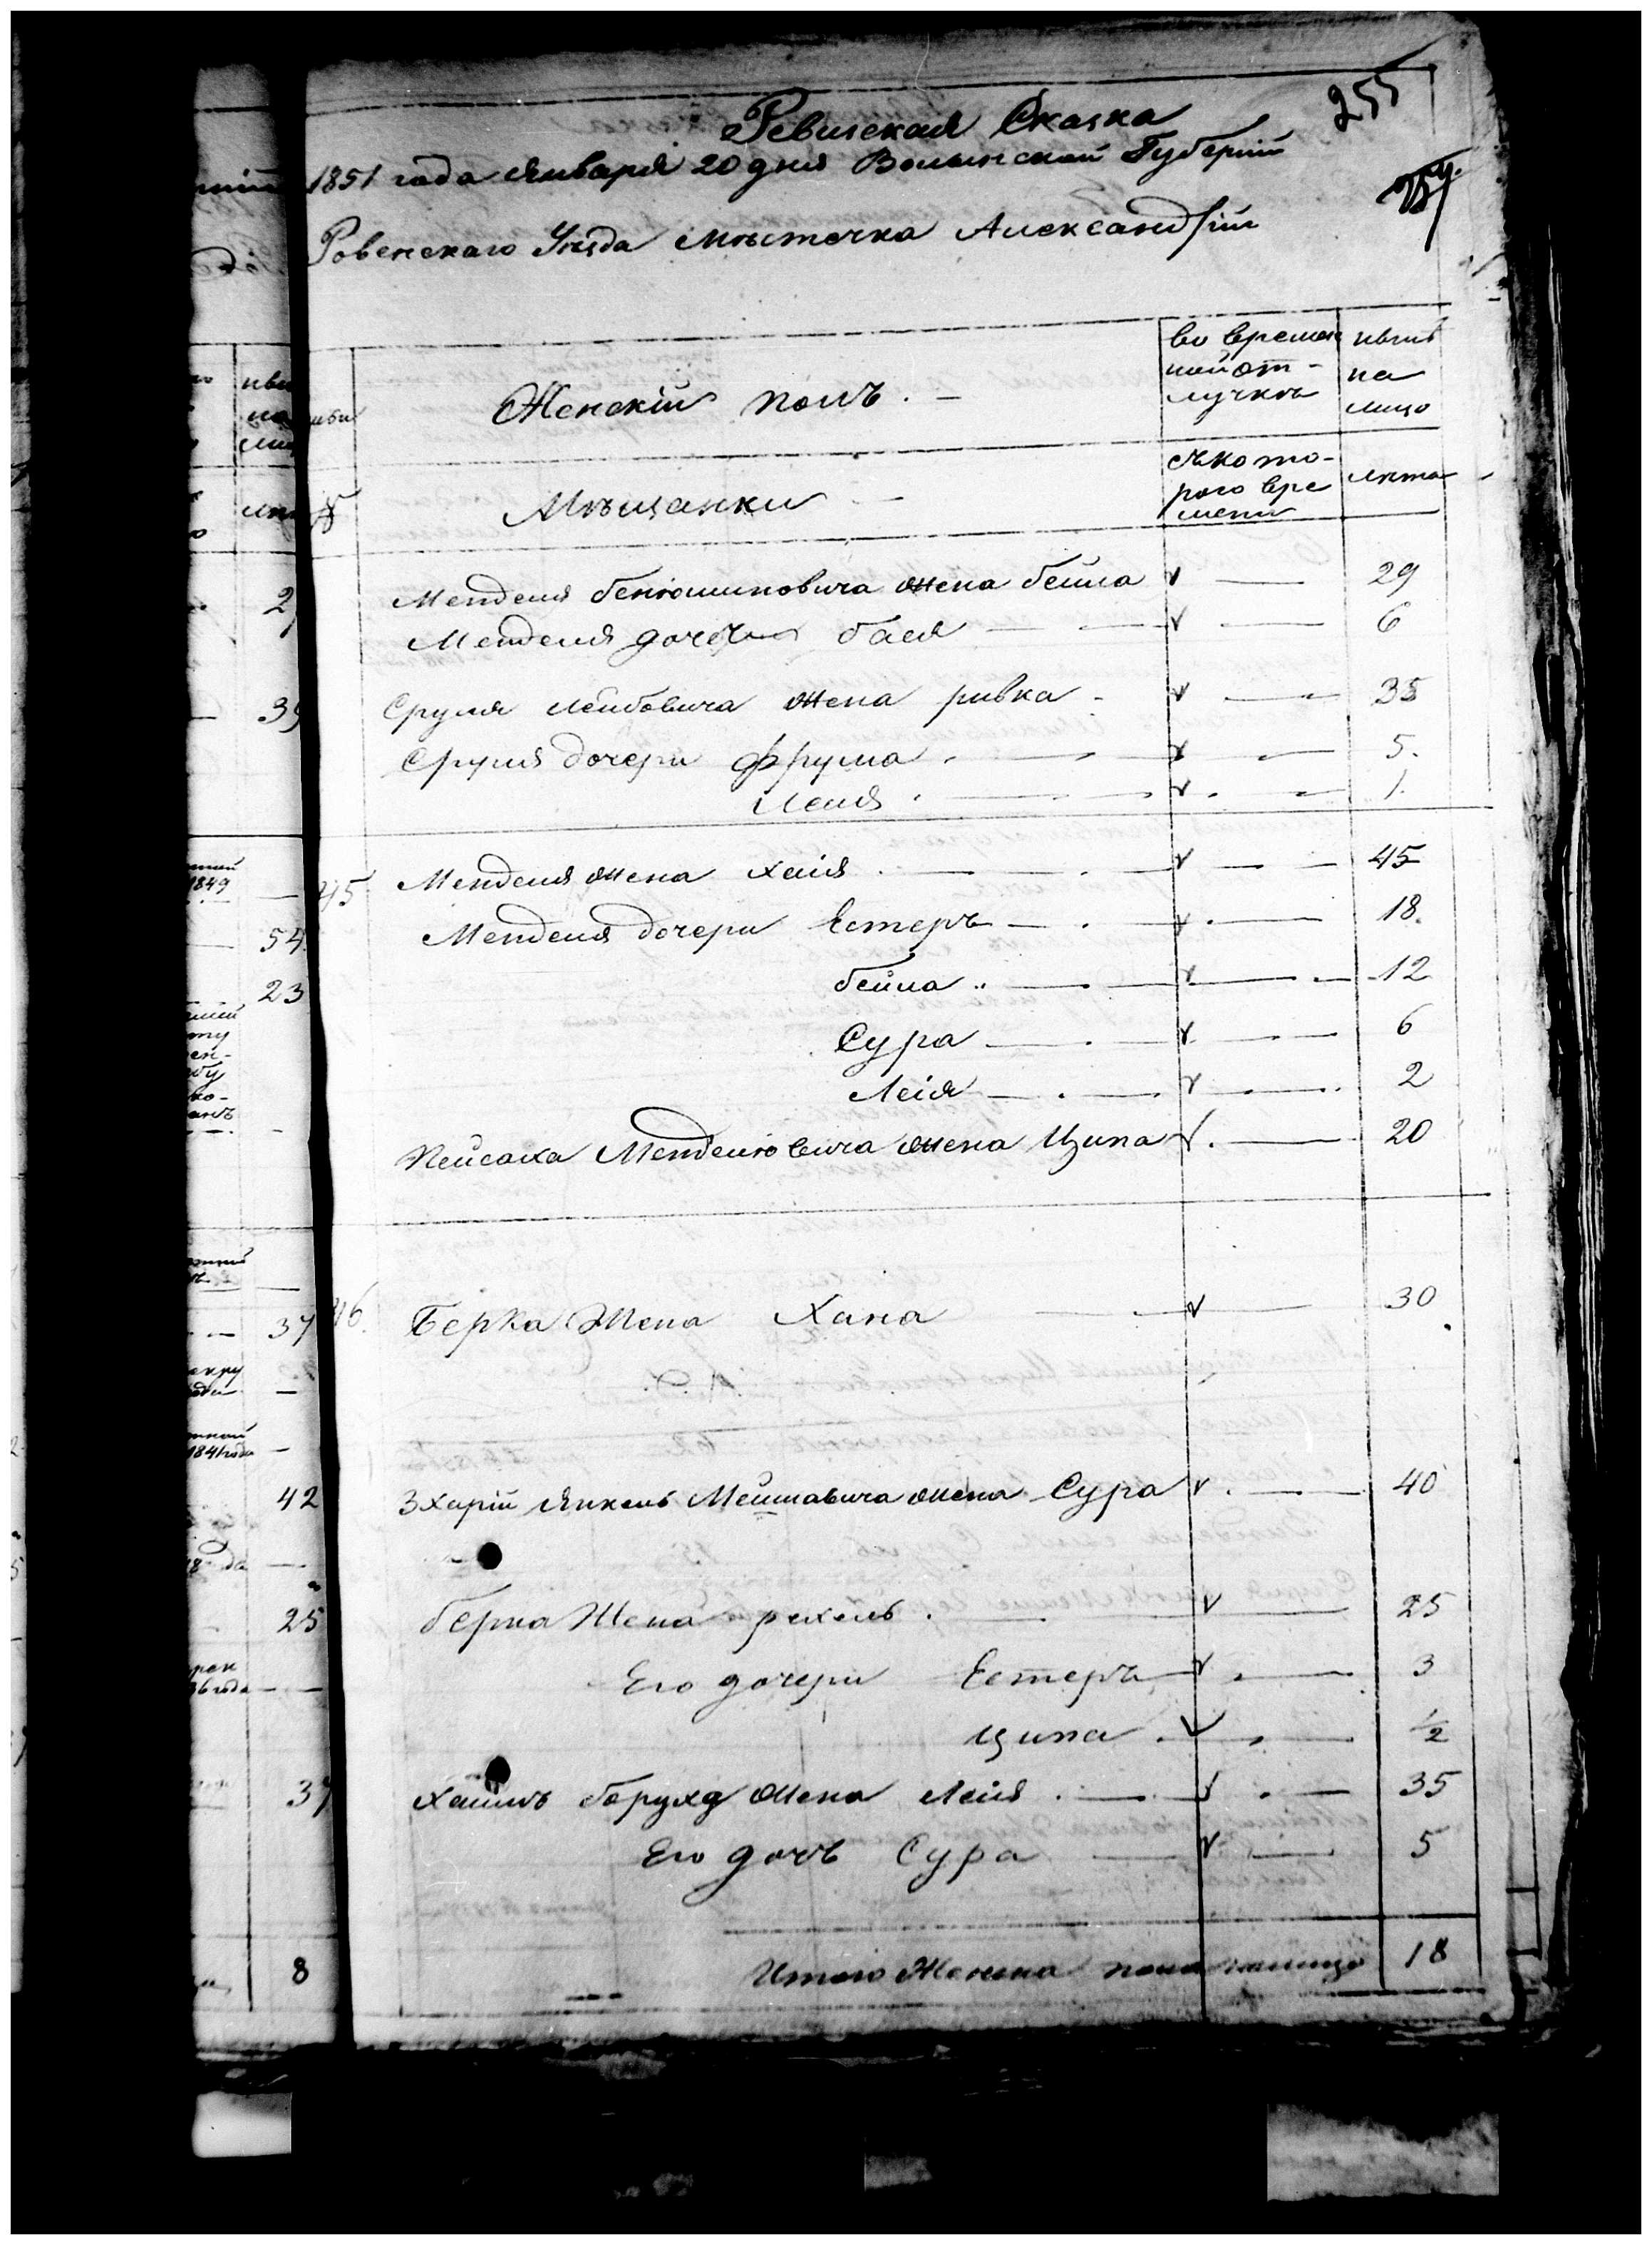 255
Ревизская Сказка
1851 года Января 20 дня Волынской Губернии
Ровенскаго Уезда Мѣстечка Александріи
Женскій полъ. -
во времен
ной от-
лучкѣ
нынѣ
на
лицо
Мѣщанки -
съ кото-
раго вре
мени
лета
Менделя Бенюминовича жена Бейла v — 29
Менделя дочь Бася — v — 6
Сруля Лейбовича жена Ривка - v — 35
Сруля дочери Фрума . — v — 5.
Лея . — v . — 1.
45 Менделя жена Хаія . — v — 45
Менделя дочери Естеръ — . v . — 18.
Бейла .. — v — 12
Сура — v . — 6
Леія — . v . — 2
Пейсаха Мендельовича жена Ципа v . — 20
46. Берка Жена Хана — v — 30
Зхарій Янкель Меншавича жена Сура v . — 40
Берка Жена рехель . — v — 25
Его дочери Естеръ v . — 3
Ципа . v . — 1/2
Хаимъ Борухд жена Леія . — v . — 35
Его дочь Сура — v — 5
Итого Женска пола налицо 18
1849
54
23
37
1841 года
42
25
37
8